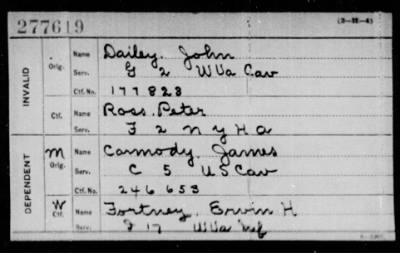 277619 (3-111-4)
INVALID
Orig. Name Dailey, John
Serv. G 2 W Va Cav
Ctf. No. 177823
Ctf. Name Ross, Peter
Serv. F 2 N Y H A
DEPENDENT
M Orig. Name Carmody, James
Serv. C 5 U S Cav
Ctf. No. 246653
W Ctf. Name Fortney, Ervin H
Serv. 17 W Va Inf